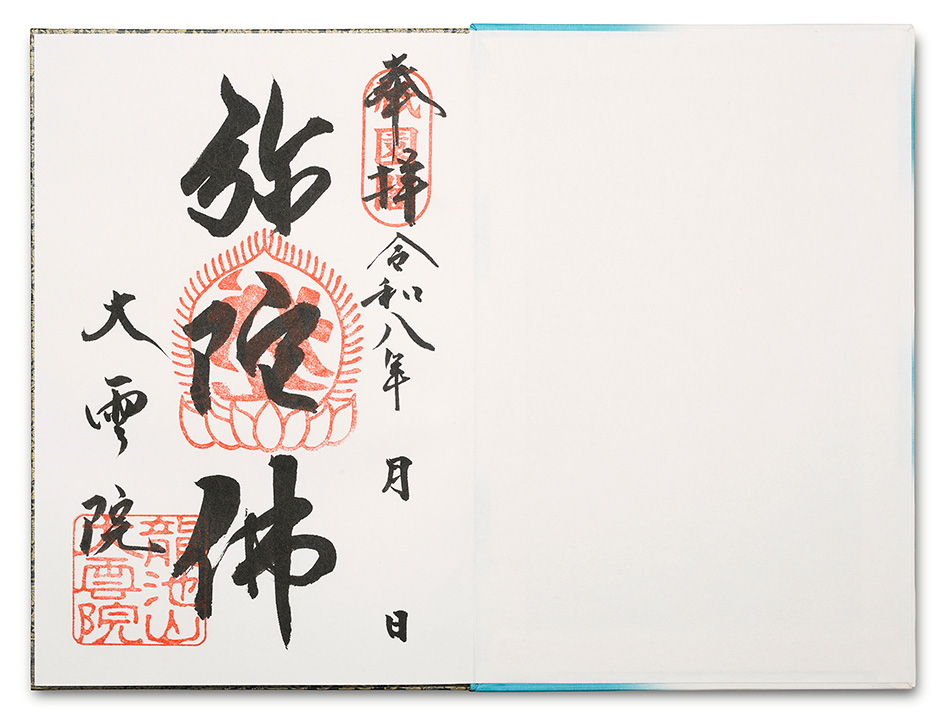 奉拝
令和八年 月 日
弥陀佛
大雲院
祇園
龍池山
大雲院